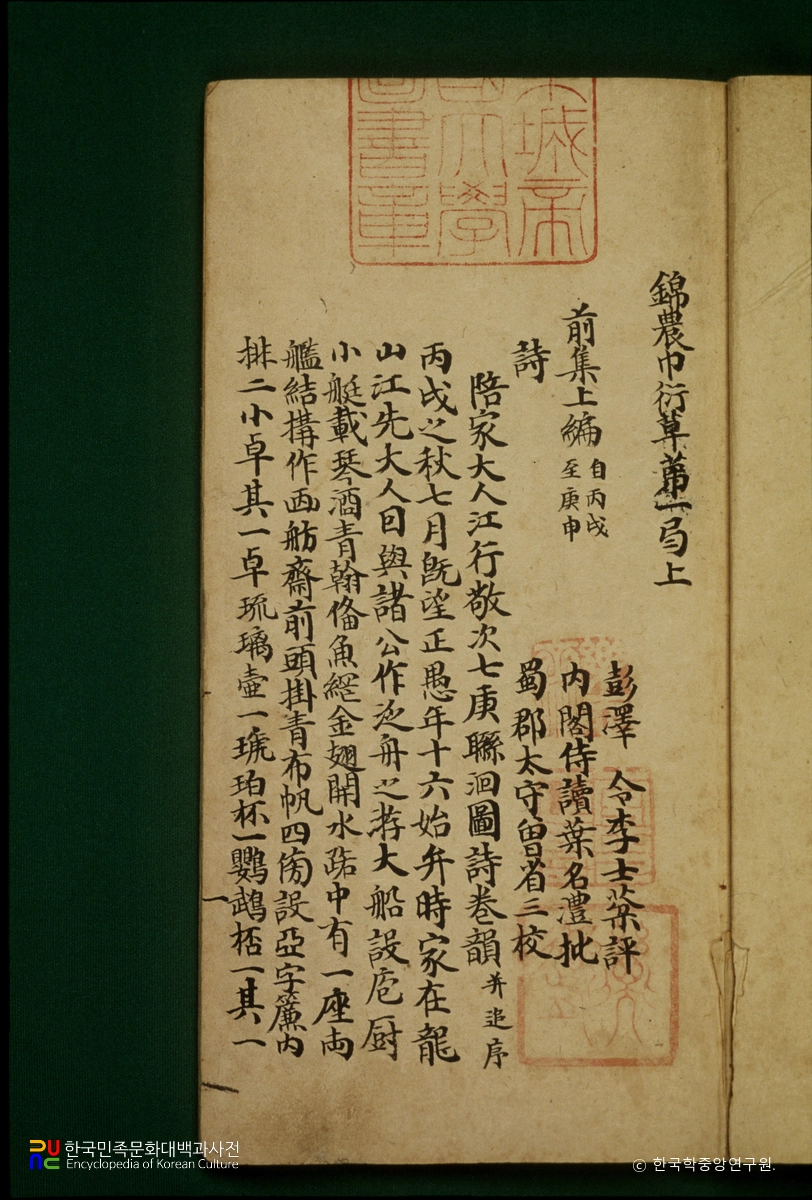 錦農巾衍草第一局上
彭澤 令李士棻評
前集上編 自丙戌至庚申
內閣侍讀葉名灃批
詩
蜀郡太守曾省三校
陪家大人江行敬次七庚聯洄圖詩卷韻 幷追序
丙戌之秋七月旣望正愚年十六始弁時家在龍
山江先大人曰與諸公作泛舟之游大船設庖厨
小艇載琴酒青翰俻魚網金翅開水路中有一座兩
艦結搆作画舫齋前頭掛青布帆四傍設亞字簾內
排二小卓其一卓琉璃壺一琥珀杯一鸚鵡桮一其一
城帝
大學
圖書章
한국민족문화대백과사전
Encyclopedia of Korean Culture
© 한국학중앙연구원.